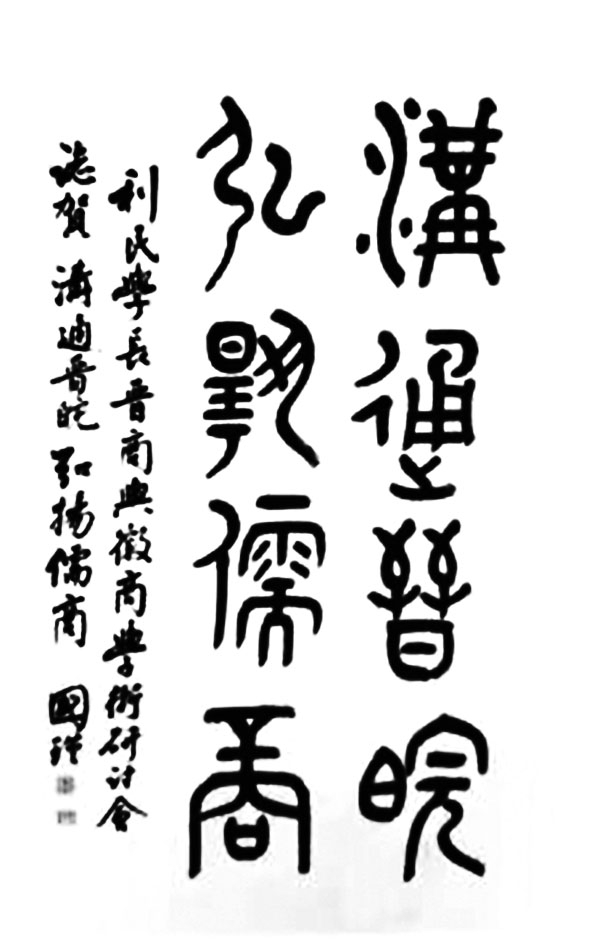 溝通晉皖
弘揚儒商
利民學長晋商與徽商學術研討會
誌賀 溝通晋皖 弘揚儒商 國